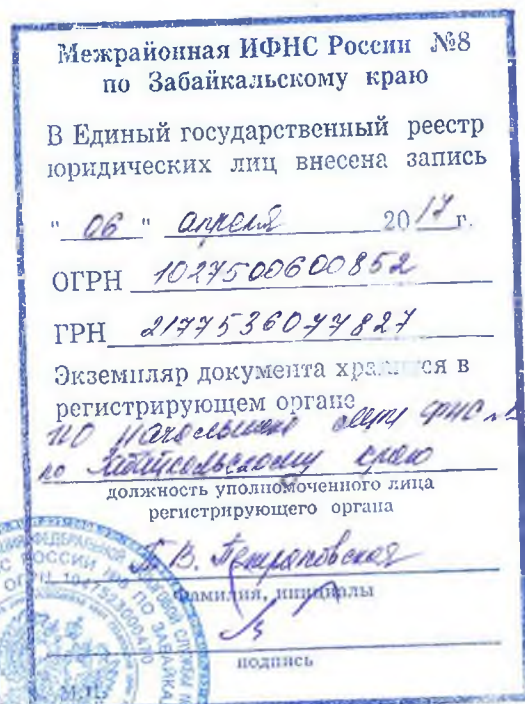 Межрайонная ИФНС России №8
по Забайкальскому краю
В Единый государственный реестр
юридических лиц внесена запись
"06" апреля 2017г.
ОГРН 1027500600852
ГРН 2177536077827
Экземпляр документа хранится в
регистрирующем органе
по Забайкальскому краю
должность уполномоченного лица
регистрирующего органа
фамилия, инициалы
подпись
М.П.